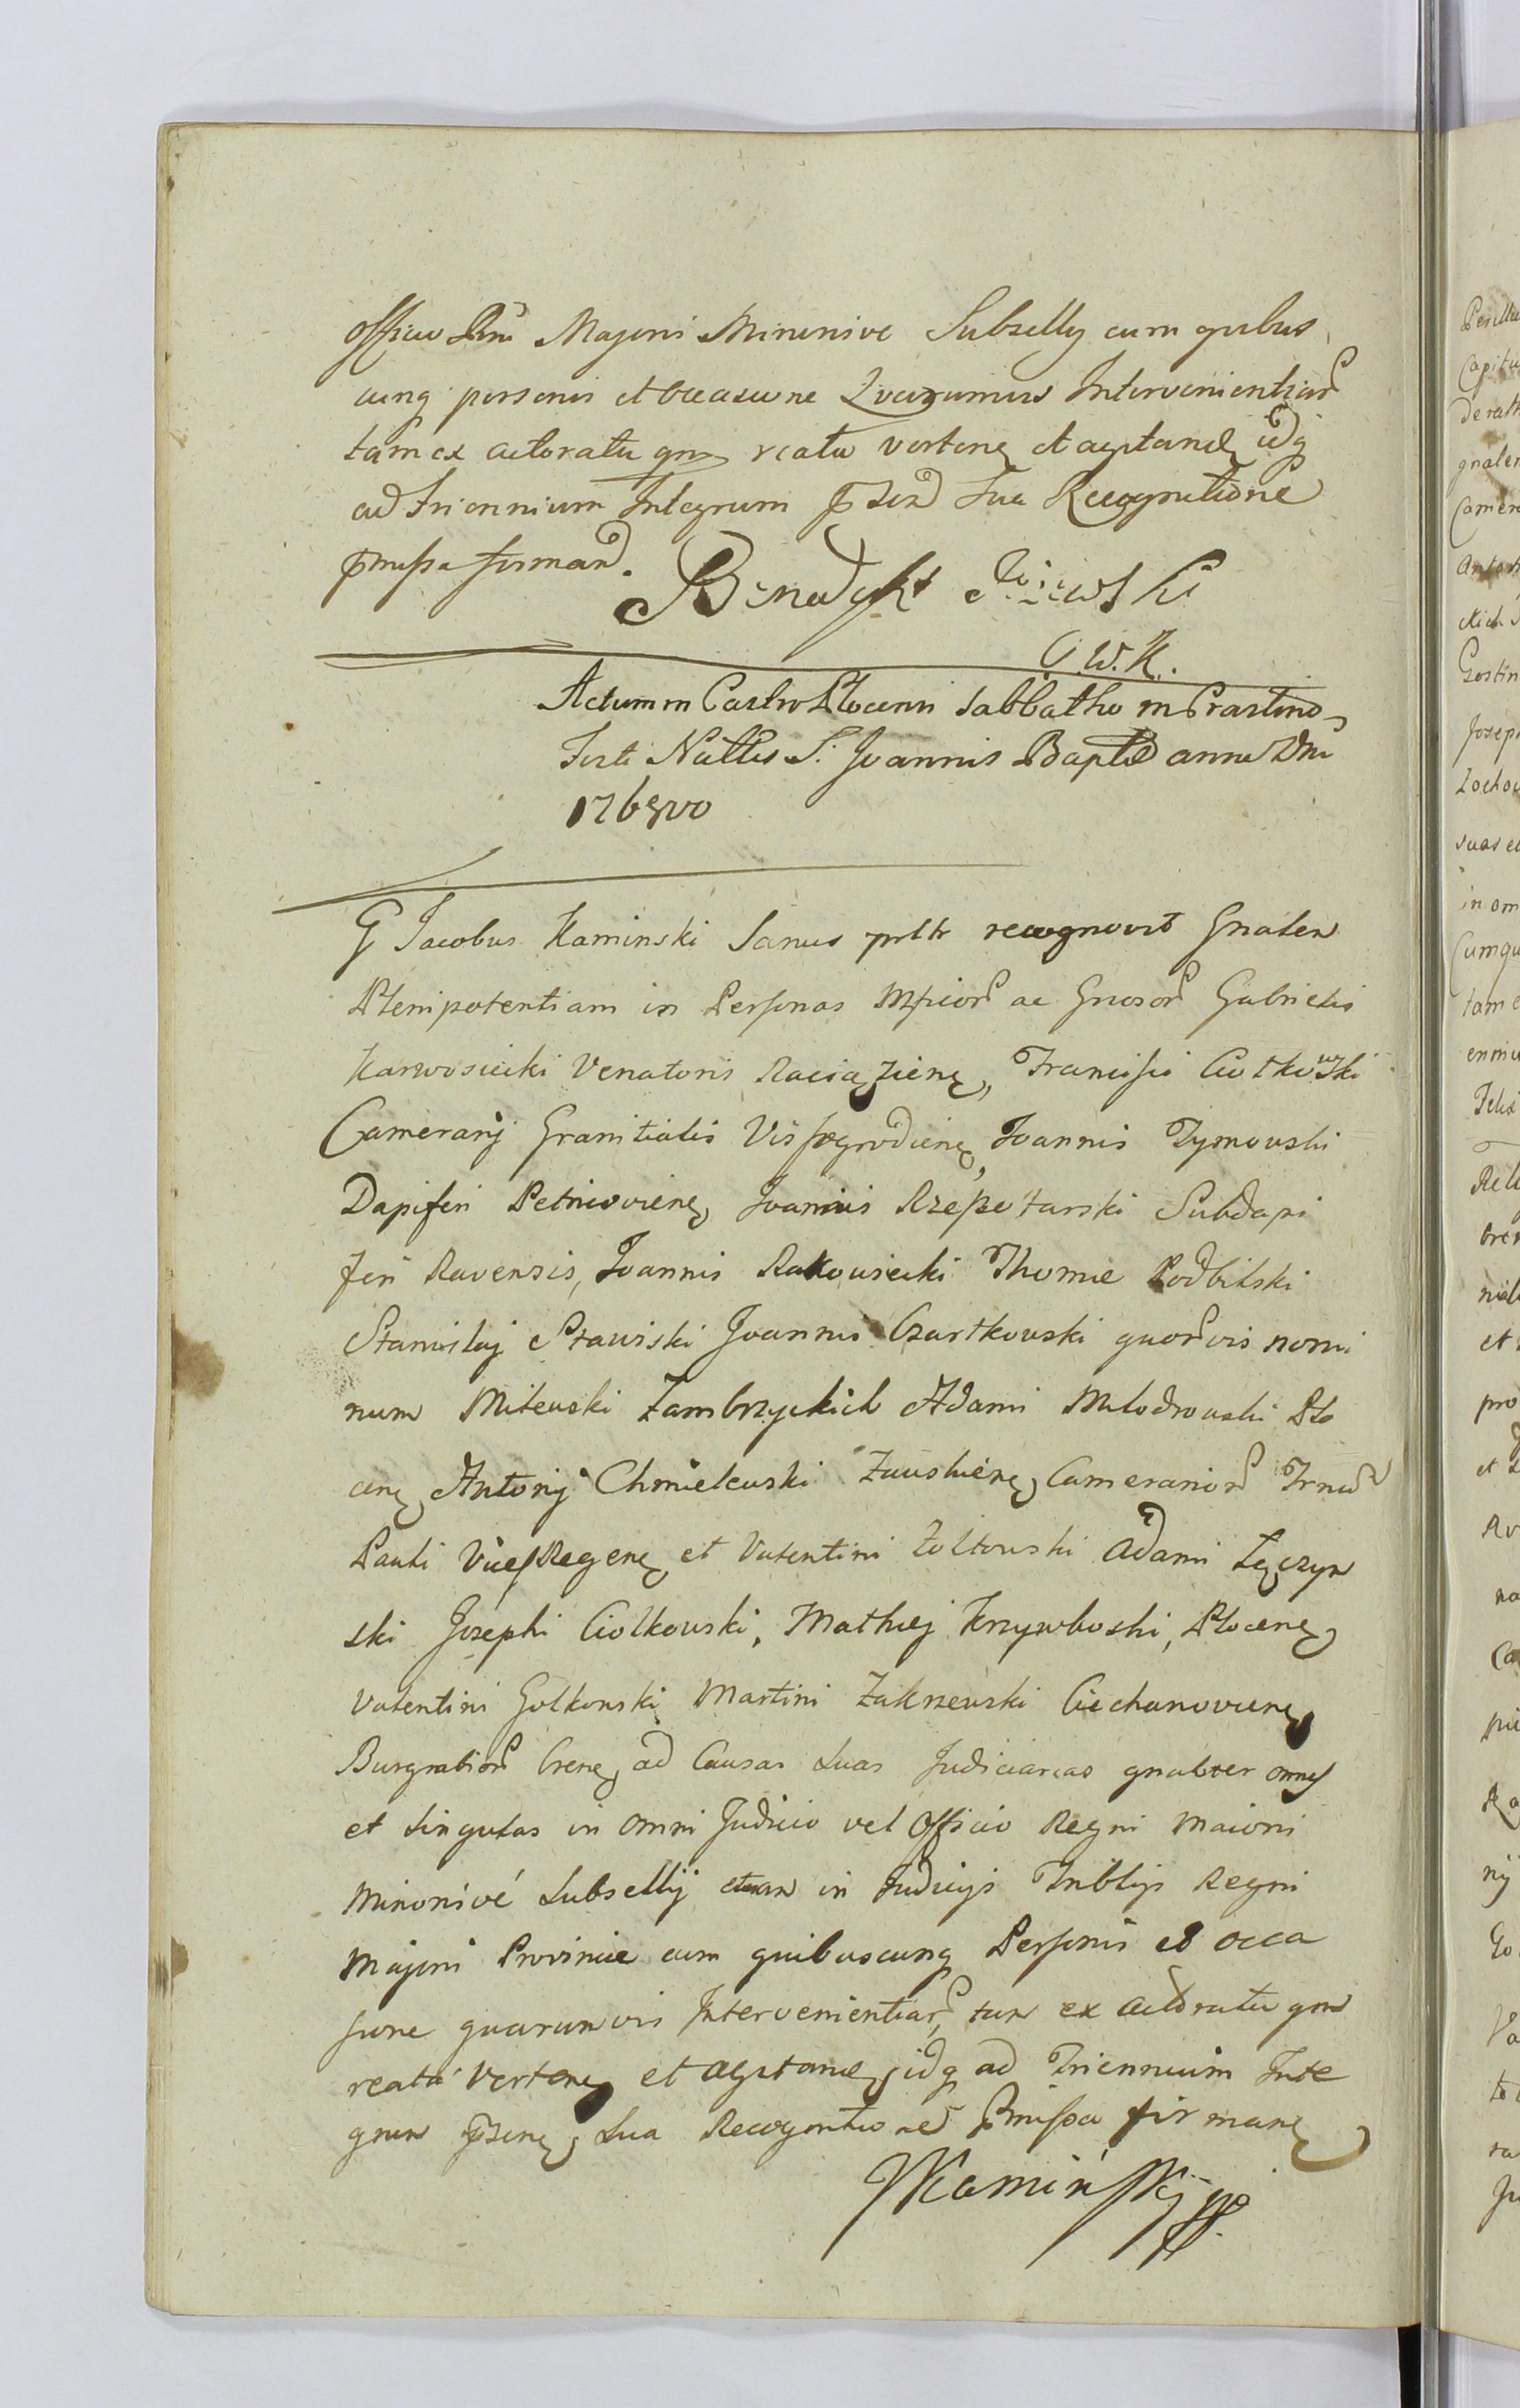 officio Rni Majoris Minorisve Subselly cum quibus
cunq personis et occasione Quarumvis Intervenientiar
tam ex actoratu qm reatu verten et agitand idq
ad Triennium Integrum psen sua Recognitione
pmissa firmand.
Benedykt
C. W. K.
Actum in Castro Plocensi Sabbatho in Crastino
Festi Nattis S. Joannis Baptae anno Dni
1768vo
G Jacobus Kaminski Sanus pttr recognovit Gnalem
Plenipotentiam in Personas Mficor ac Gnosor Gabrielis
Karwosiecki Venatoris Raciązien, Francisci Ciołkowski
Camerarij Granitialis Vissegrodien, Joannis Tymowski
Dapiferi Petriovien Joannis Rzeszotarski Subdapi
feri Ravensis, Joannis Rakowiecki Thomae Podbilski
Stanislaj Stawiski Joannis Czartkowski quorvis nomi
num Milewski Zambrzyckich Adami Młodzowski Plo
cen Antonij Chmielewski Zawskrien Camerarior Trnur
Pauli ViceRegen et Valentini Zołtowski Adami Łęczyn
ski Josephi Ciolkowski, Mathiej Krzywkoski, Plocen
Valentini Golkonski Martini Zakrzewski Ciechanovien
Burgrabior Cren ad Causas suas Judiciarias gnaliter omnes
et singulas in omni Judicio vel Officio Regni Maioris
Minorisvé Subsellij etiam in Judicijs Tribtijs Regni
Majoris Provinciae cum quibuscunq Personis et occa
sione quarumvis Intervenientiar, tam ex Actoratu qm
reatu verten et agitand, idq ad Triennium Inte
grum psen, Sua Recognitione Pmissa firman
JKamiński mp.